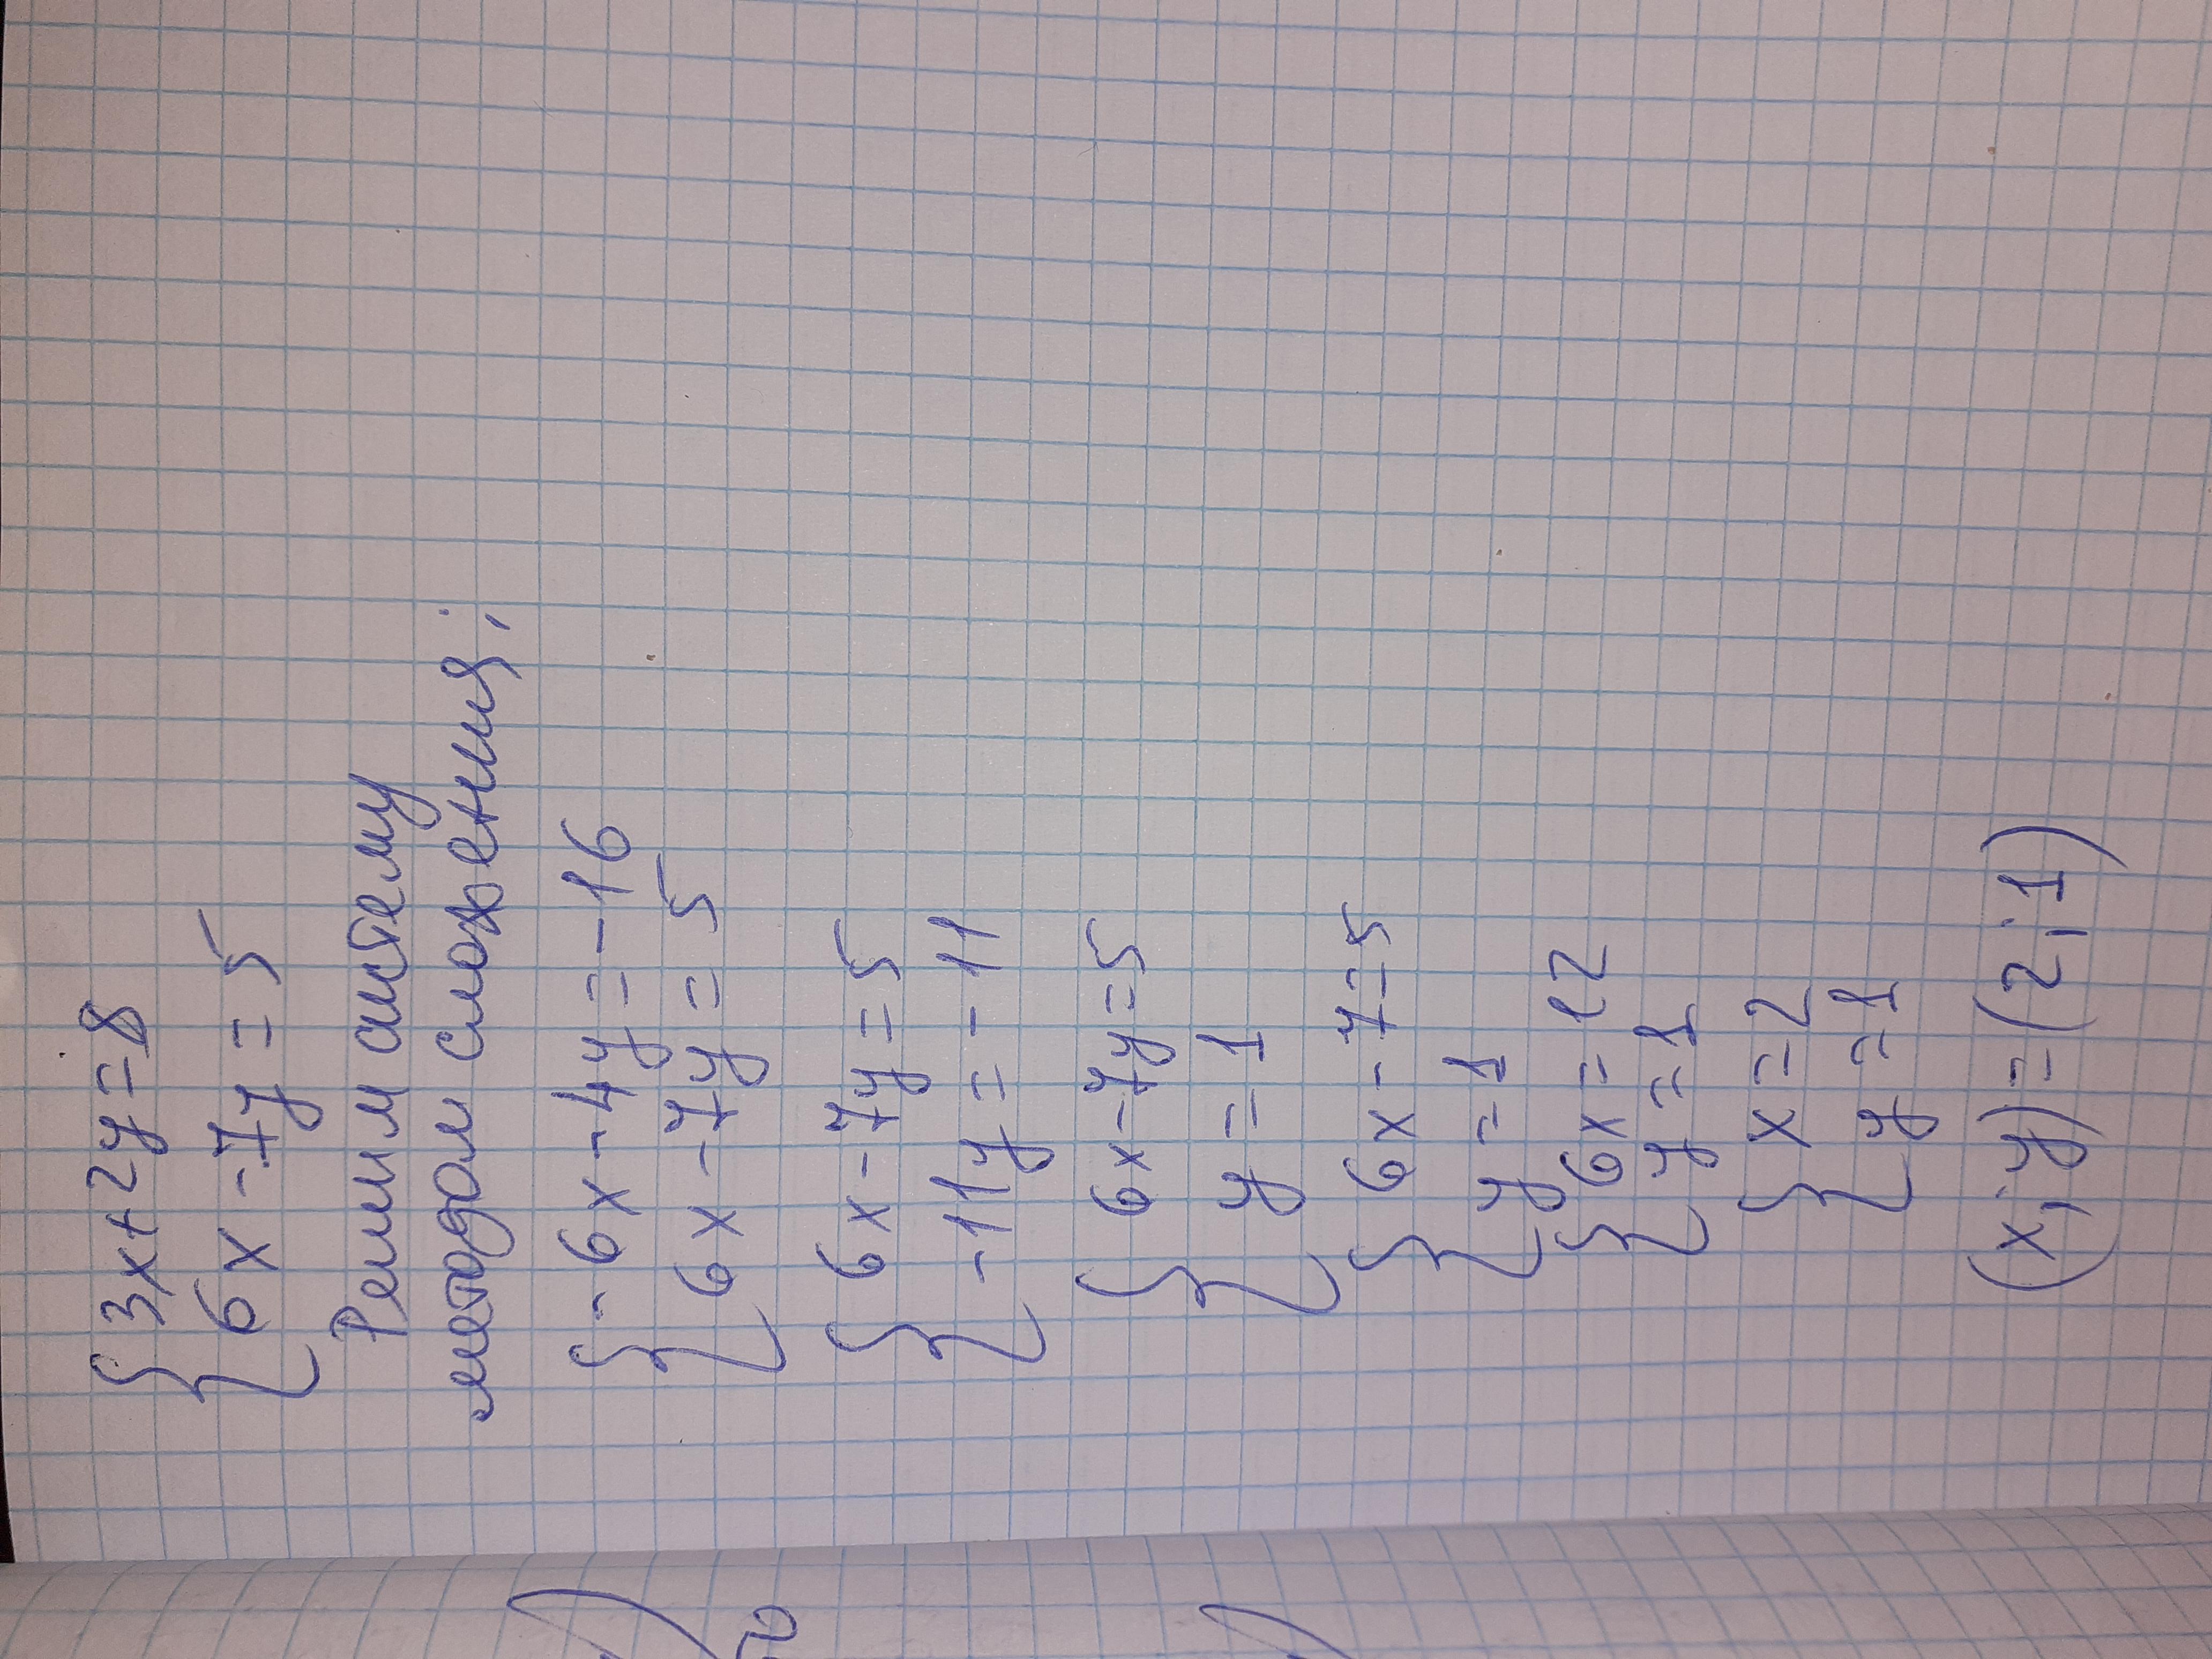 3x+2y=8
6x-7y=5
Решим систему
методом сложения;
-6x-4y=-16
6x-7y=5
6x-7y=5
-11y=-11
6x-7y=5
y=1
6x-7=5
y=1
6x=12
y=1
x=2
y=1
(x;y)=(2;1)